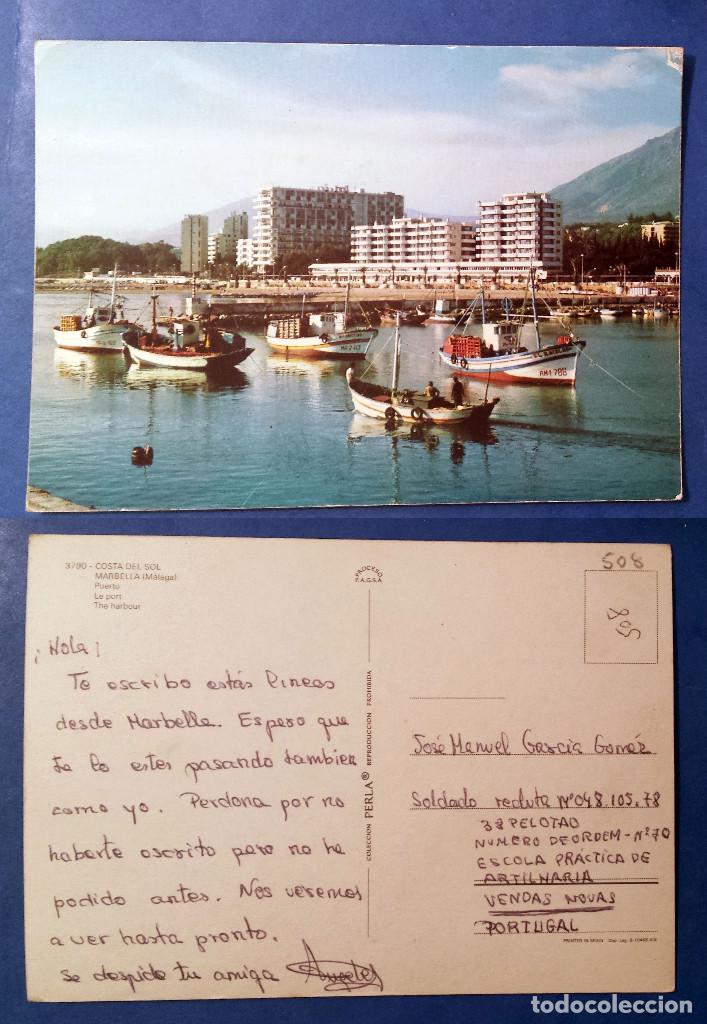 AM1 786
3790 - COSTA DEL SOL
MARBELLA (Málaga)
Puerto
Le port
The harbour
PROCESO
F.A.G.S.A.
508
508
¡Hola!
Te escribo estás lineas
desde Marbella. Espero que
te lo estes pasando tambien
como yo. Perdona por no
haberte escrito pero no he
podido antes. Nos veremos
a ver hasta pronto.
se despide tu amiga Angeles
COLECCION PERLA® REPRODUCCION PROHIBIDA
José Manuel García Goméz
Soldado recluta Nº048.105.78
3º PELOTAO
NUMERO DE ORDEM - Nº70
ESCOLA PRÁCTICA DE
ARTILHARIA
VENDAS NOVAS
PORTUGAL
PRINTED IN SPAIN Dep. Leg. B.
todocoleccion